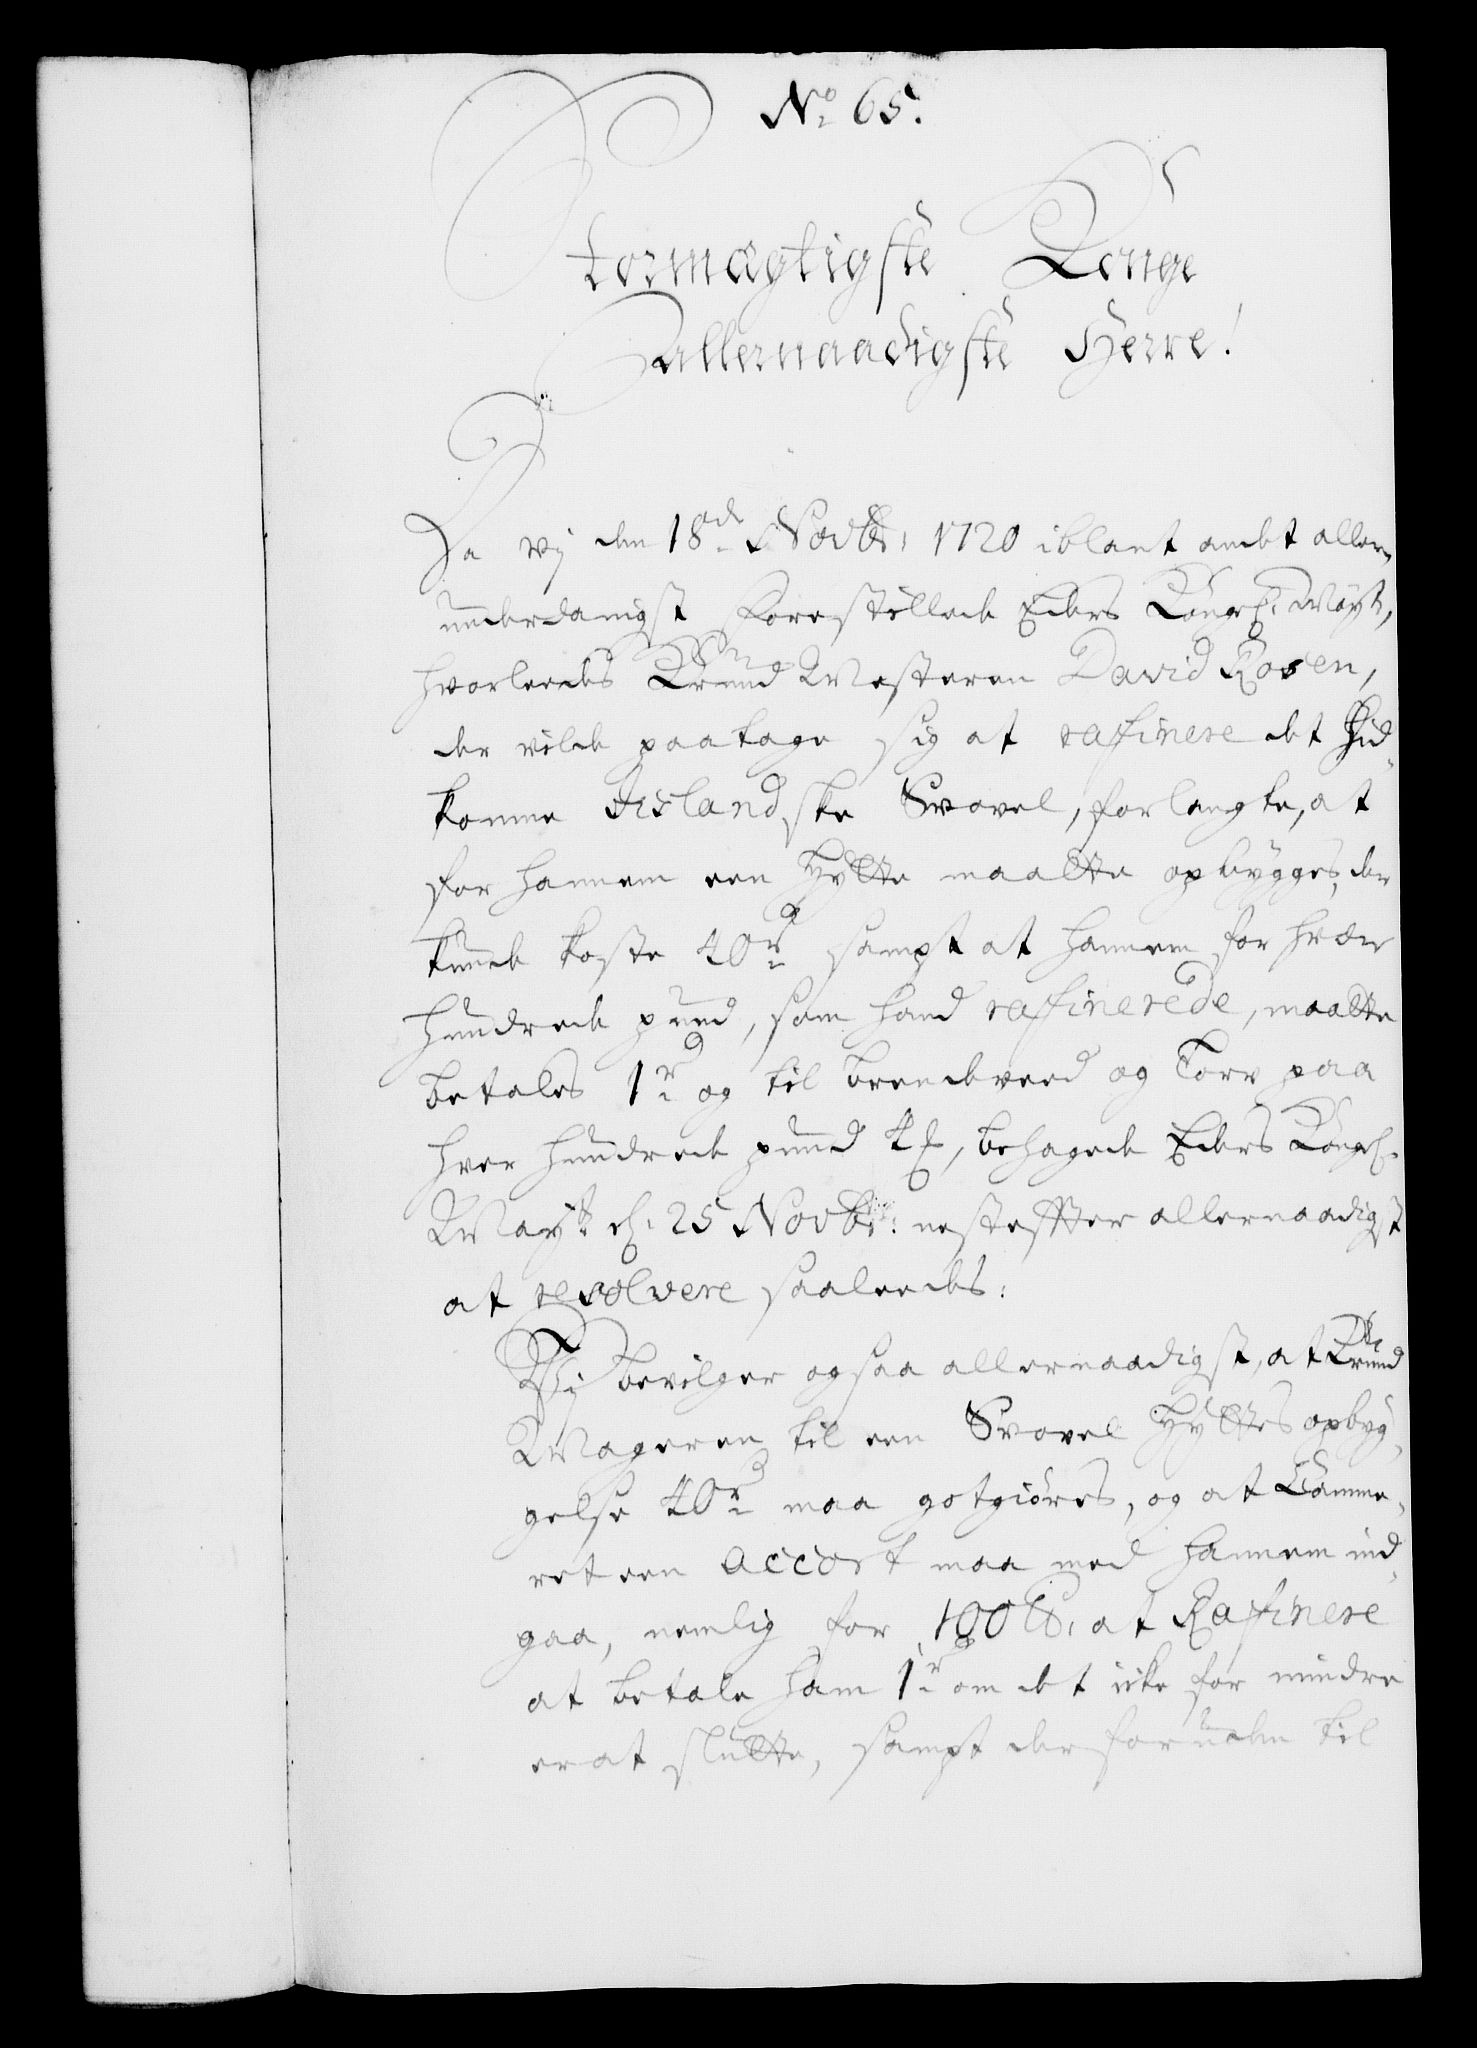 No 65.
Stormægtigste Konge
allernaadigste Herre!
Da vj den 18de Novbr: 1720 iblant andet aller-
underdanigst forestillede Eders Kongel: Mayt,
hvorleedes Krud Mesteren David Rosen,
der vilde paatage sig at raffinere det hid-
komne Jislandske Svovel, forlangte, at
for hannem een Hytte maatte opbygges, der
kunde koste 40 rd sampt at hannem for hver
hundrede pund, som hand raffinerede, maatte
betales 1 rd og til brendeveed og Torv paa
hver hundrede pund 4 ß, behagede Eders Kongel.
Mayt d: 25 Novbr: nesteffter allernaadigst
at resolvere saaledes:
Vj bevilger ogsaa allernaadigst, at Krud
Mageren til een Svovel Hyttes opbyg-
gelse 40 rd maa gotgiøres, og at Camme-
ret een Accort maa med hannem ind-
gaa, nemlig for 100 ℔: at Raffinere
at betale ham 1 rd om det icke for mindre
er at slutte, sampt der foruden til